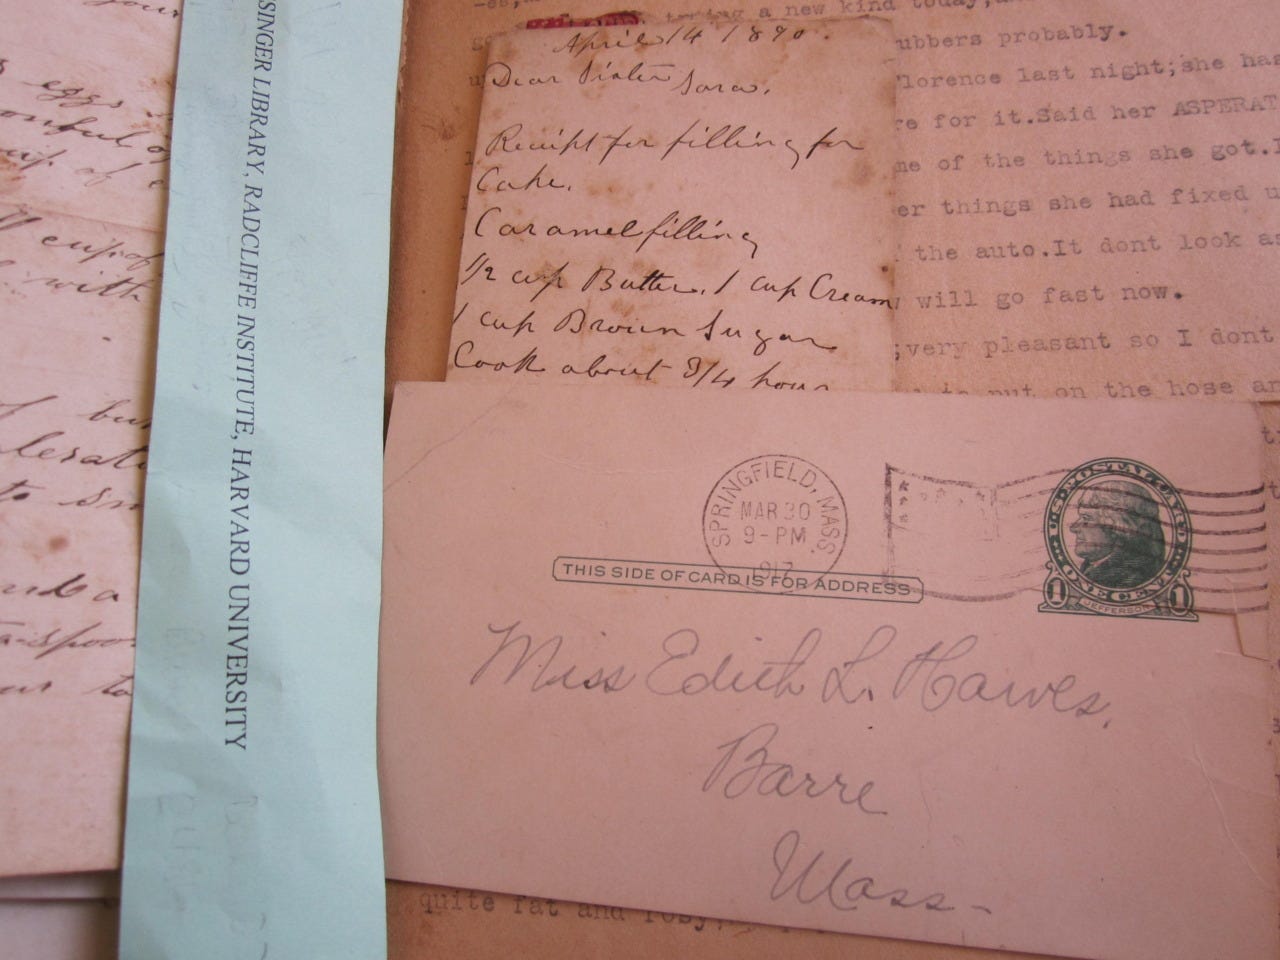 eggs
cup of
with
to
SINGER LIBRARY, RADCLIFFE INSTITUTE, HARVARD UNIVERSITY
April 14 1890.
Dear Sister Sara,
Receipt for filling for
Cake.
Caramel filling
1/2 cup Butter, 1 cup Cream
1 cup Brown Sugar
Cook about 3/4 hour
a new kind today,
ubbers probably.
lorence last night;she has
re for it.Said her ASPERAT
me of the things she got.I
er things she had fixed u
the auto.It dont look as
will go fast now.
;very pleasant so I dont
put on the hose an
SPRINGFIELD, MASS.
MAR 30
9-PM
1917
U.S. POSTAL CARD
1 ONE CENT 1
JEFFERSON
THIS SIDE OF CARD IS FOR ADDRESS
Miss Edith L. Hawes,
Barre
Mass-
quite fat and rosy,